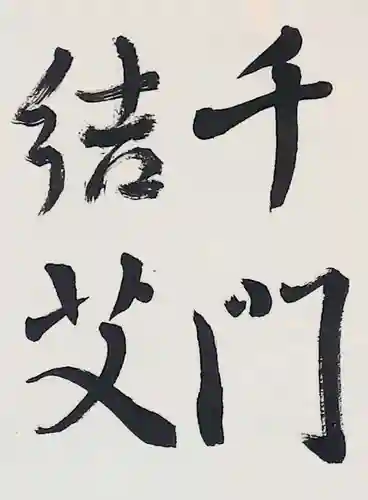 千门
结艾